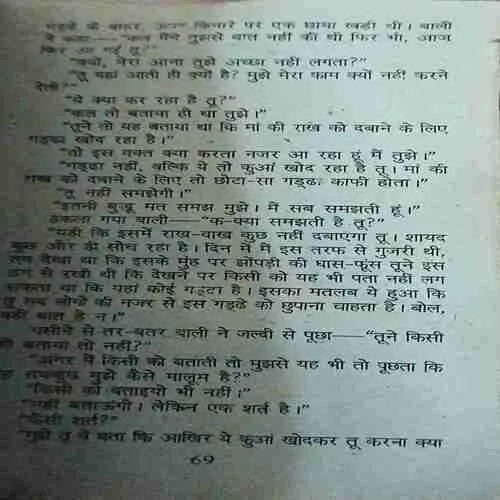 गड्ढे के बाहर, ऊपर किनारे पर एक छाया खड़ी थी। बाली
ने कहा—“कल मैंने तुझसे बात नहीं की थी फिर भी, आज
फिर आ गई तू?”
“क्यों, मेरा आना तुझे अच्छा नहीं लगता?”
“तू यहां आती ही क्यों है? मुझे मेरा काम क्यों नहीं करने
देती?”
“ये क्या कर रहा है तू?”
“कल तो बताया ही था तुझे।”
“तूने तो यह बताया था कि मां की राख को दबाने के लिए
गड्ढा खोद रहा है।”
“तो इस वक्त क्या करता नजर आ रहा हूं मैं तुझे।”
“गड्ढा नहीं, बल्कि ये तो कुआं खोद रहा है तू। मां की
राख को दबाने के लिए तो छोटा-सा गड्ढा काफी होता।”
“तू नहीं समझेगी।”
“इतनी बुद्धू मत समझ मुझे। मैं सब समझती हूं।”
हकला गया बाली—“क-क्या समझती है तू?”
“यही कि इसमें राख-वाख कुछ नहीं दबाएगा तू। शायद
कुछ और ही सोच रहा है। दिन में मैं इस तरफ से गुजरी थी,
तब देखा था कि इसके मुंह पर झोंपड़ी की घास-फूंस तूने इस
ढंग से रखी थी कि देखने पर किसी को यह भी पता नहीं लग
सकता था कि यहां कोई गड्ढा है। इसका मतलब ये हुआ कि
तू सब लोगों की नजर से इस गड्ढे को छुपाना चाहता है। बोल,
यही बात है न।”
पसीने से तर-बतर बाली ने जल्दी से पूछा—“तूने किसी
को बताया तो नहीं?”
“अगर मैं किसी को बताती तो मुझसे यह भी तो पूछता कि
मुझे कैसे मालूम है?”
“किसी को बताइयो भी नहीं।”
“नहीं बताऊंगी। लेकिन एक शर्त है।”
“कैसी शर्त?”
“मुझे तू ये बता कि आखिर ये कुआं खोदकर तू करना क्या
69